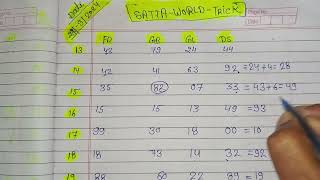 SATTA-WORLD-Trick
FR GB GL DS
13 42 79 24 44
14 42 41 63 92 =24+4=28
15 35 82 07 33 =43+6=49
16 15 15 13 49 =93
17 99 30 18 00 =10
18 73 14 32 =92
19 88 60 22 89 =19